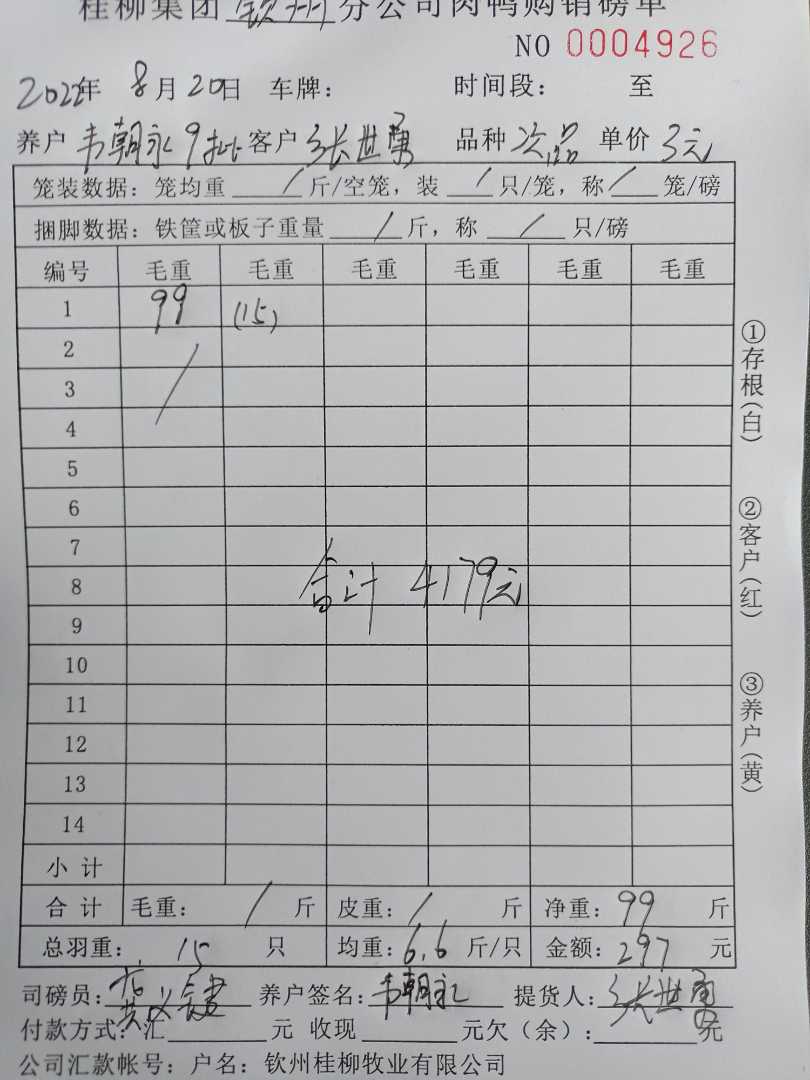 桂柳集团 钦州 分公司肉鸭购销磅单
NO 0004926
2022年 8月20日 车牌： 时间段： 至
养户 韦朝永9批 客户 张世勇 品种 次品 单价 3元
笼装数据：笼均重 / 斤/空笼，装 / 只/笼，称 / 笼/磅
捆脚数据：铁筐或板子重量 / 斤，称 / 只/磅
编号 毛重 毛重 毛重 毛重 毛重 毛重
1 99 (15)
2 /
3
4
5
6
7
8 合计 4179元
9
10
11
12
13
14
小计
合计 毛重： / 斤 皮重： / 斤 净重：99 斤
总羽重： 15 只 均重：6.6 斤/只 金额：297 元
司磅员： 养户签名：韦朝永 提货人：张世勇
付款方式：汇 元 收现 元欠（余）： 元
公司汇款帐号：户名：钦州桂柳牧业有限公司
①存根（白）
②客户（红）
③养户（黄）